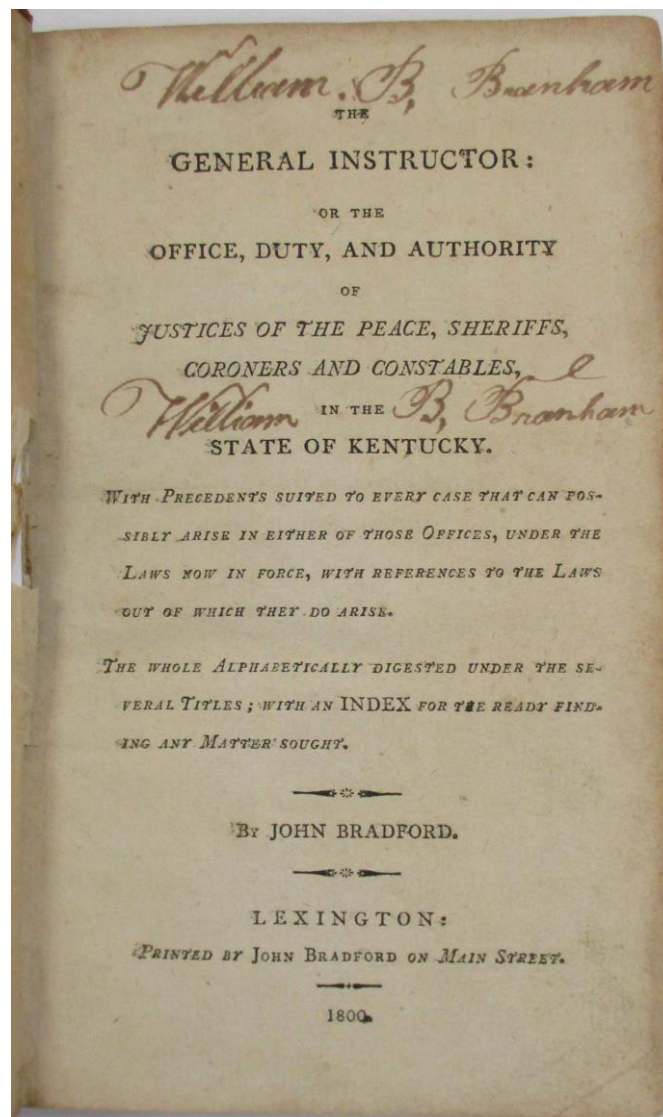 William. B, Branham
THE
GENERAL INSTRUCTOR:
OR THE
OFFICE, DUTY, AND AUTHORITY
OF
JUSTICES OF THE PEACE, SHERIFFS,
CORONERS AND CONSTABLES,
IN THE
William B, Branham
STATE OF KENTUCKY.
WITH PRECEDENTS SUITED TO EVERY CASE THAT CAN POS-
SIBLY ARISE IN EITHER OF THOSE OFFICES, UNDER THE
LAWS NOW IN FORCE, WITH REFERENCES TO THE LAWS
OUT OF WHICH THEY DO ARISE.
THE WHOLE ALPHABETICALLY DIGESTED UNDER THE SE-
VERAL TITLES; WITH AN INDEX FOR THE READY FIND-
ING ANY MATTER SOUGHT.
BY JOHN BRADFORD.
LEXINGTON:
PRINTED BY JOHN BRADFORD ON MAIN STREET.
1800.